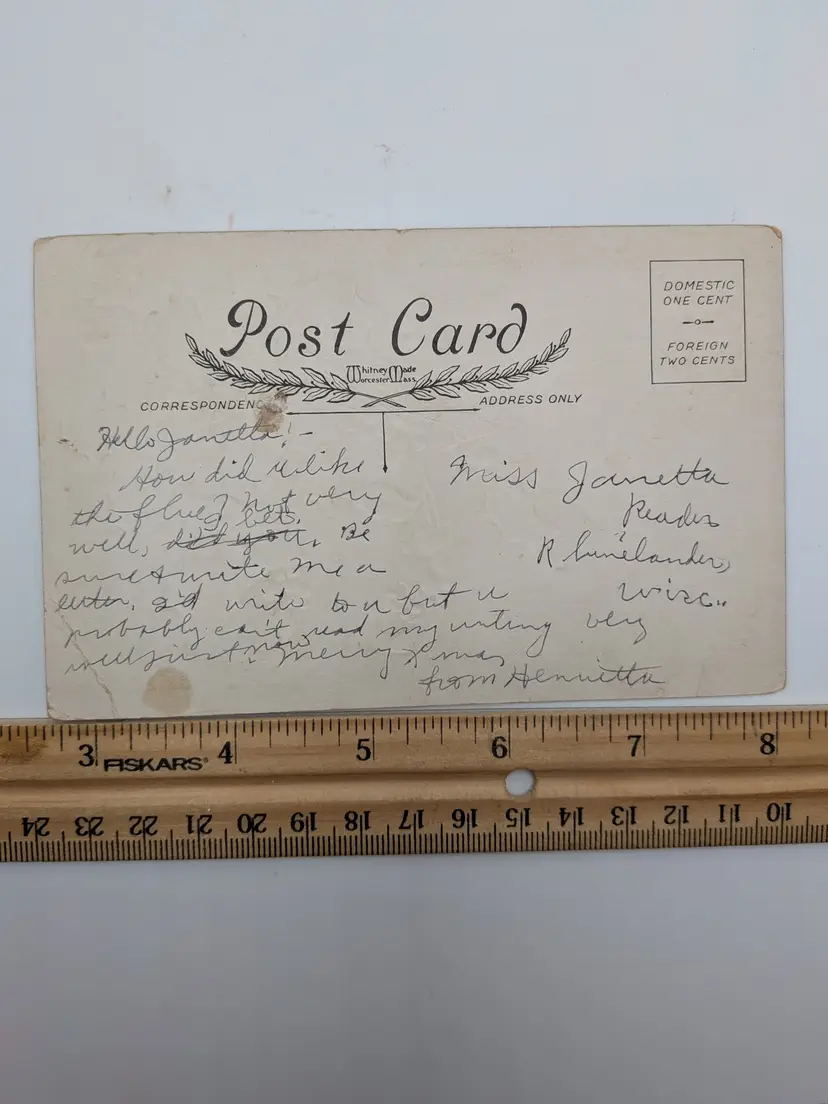 Post Card
Whitney Made
Worcester Mass.
DOMESTIC
ONE CENT
FOREIGN
TWO CENTS
CORRESPONDENC
ADDRESS ONLY
Hello Janetta! -
How did u like
the flue? Not very
well, did you, bet. Be
sure & write me a
letter. I'd write to u but u
probably can't read my writing very
well just now. Merry Xmas
from Henrietta
Miss Janetta
Reader
Rhinelander,
Wisc..
3 FISKARS 4 5 6 7 8
24 23 22 21 20 19 18 17 16 15 14 13 12 11 10